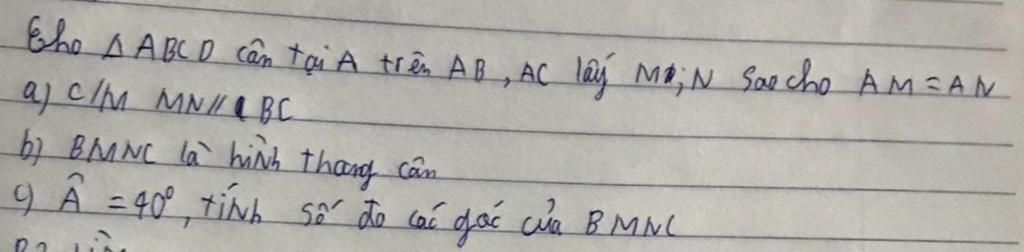 Cho △ ABCD cân tại A trên AB, AC lấy M; N sao cho AM = AN
a) C/M MN // BC
b) BMNC là hình thang cân
c) Â = 40°, tính số đo các góc của BMNC